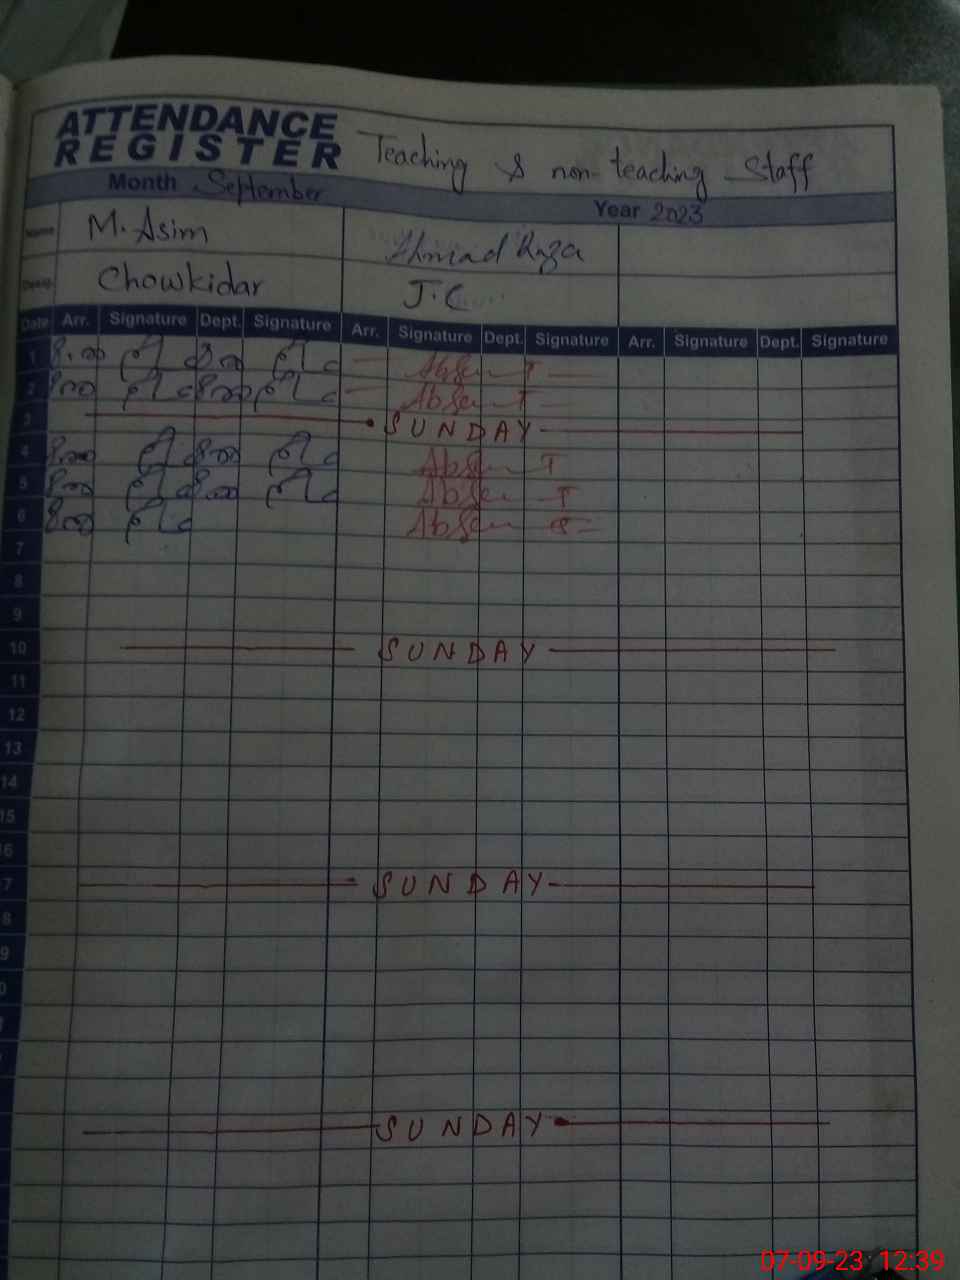 ATTENDANCE
REGISTER Teaching & non-teaching Staff
Month September
Year 2023
Name M. Asim Ahmad Raza
Desig. Chowkidar J.C
Date Arr. Signature Dept. Signature Arr. Signature Dept. Signature Arr. Signature Dept. Signature
1 8:00 8:00 Absen T
2 8:00 8:00 Absen T
3 SUNDAY
4 8:00 8:00 Absen T
5 8:00 8:00 Absen T
6 8:00 Absen
7
8
9
10 SUNDAY
11
12
13
14
15
6
7 SUNDAY
8
9
0
SUNDAY
07-09-23 12:39